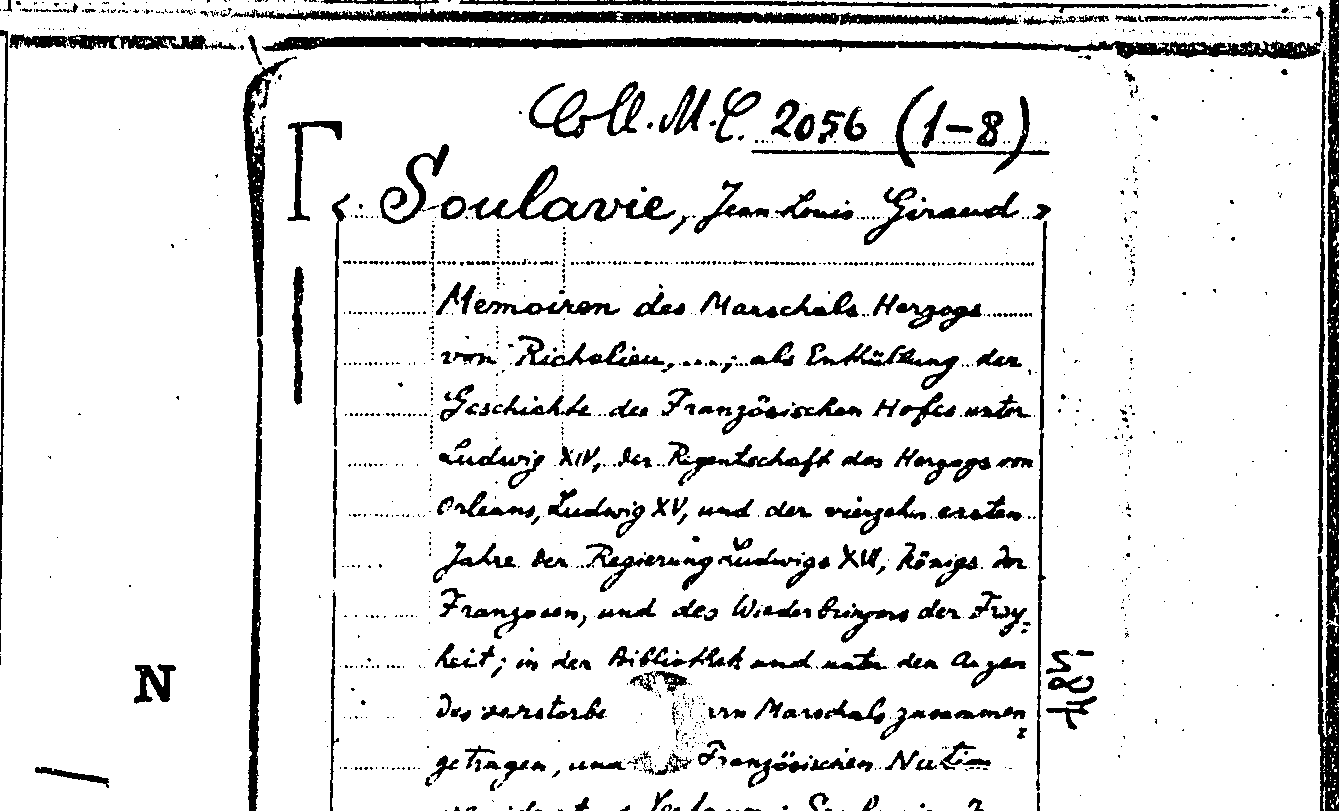 Coll. M.C. 2056 (1-8)
< Soulavie, Jean-Louis Giraud >
Memoiren des Marschals Herzogs
von Richelieu, ...; als Enthüllung der
Geschichte des Französischen Hofes unter
Ludwig XIV, der Regentschaft des Herzogs von
Orleans, Ludwig XV, und der vierzehn ersten
Jahre der Regierung Ludwigs XVI, Königs der
Franzosen, und des Wiederbringers der Frey-
heit; in der Bibliothek und unter den Augen
N
des verstorbe rrn Marschals zusammen
getragen, und Französischen Nation